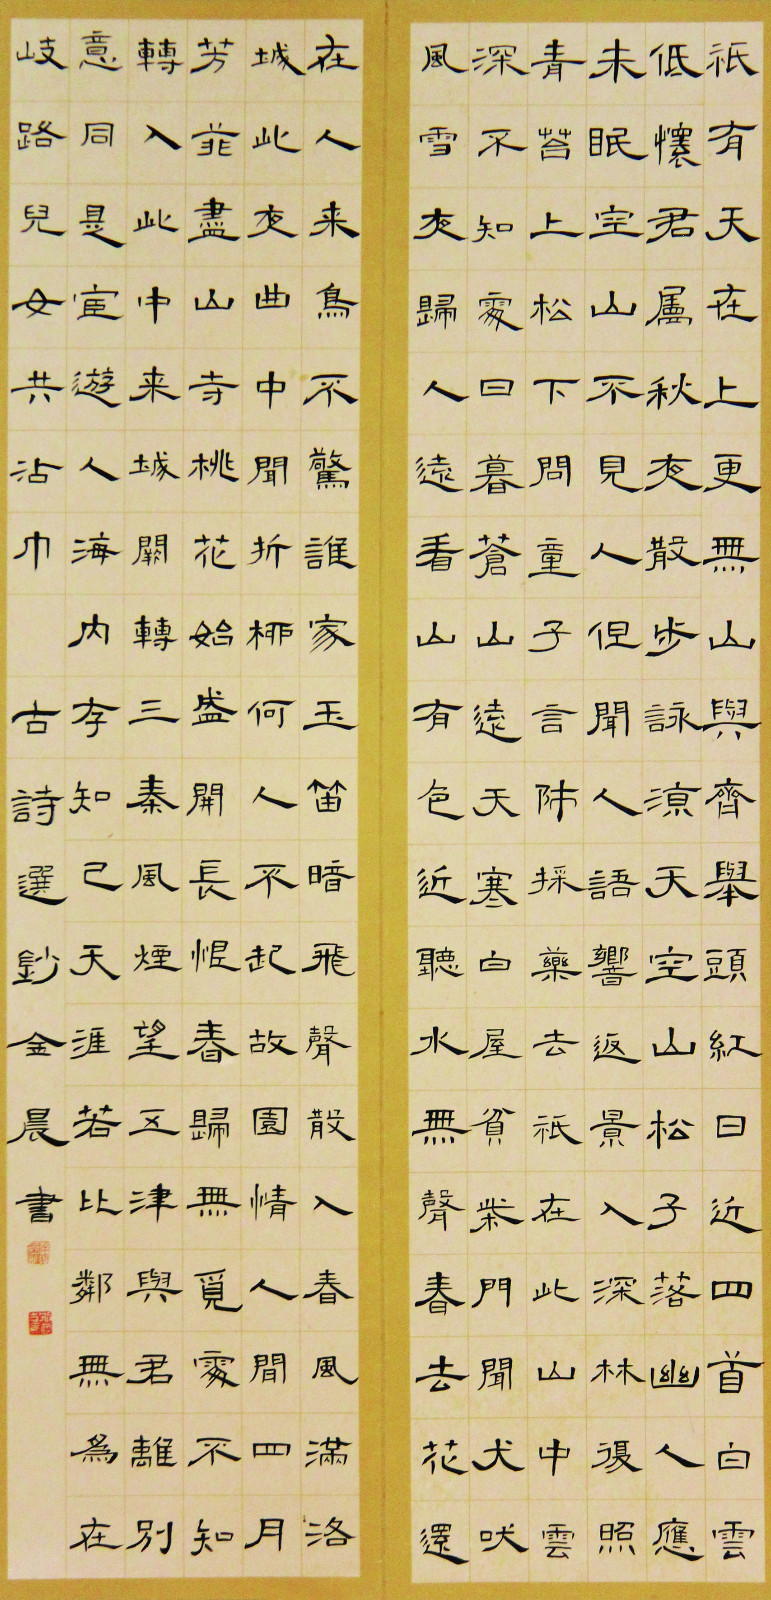 祇有天在上更無山與齊舉頭紅日近四首白雲
低懷君屬秋夜散步詠涼天空山松子落幽人應
未眠空山不見人但聞人語響返景入深林復照
青苔上松下問童子言師採藥去祇在此山中雲
深不知處日暮蒼山遠天寒白屋貧柴門聞犬吠
風雪夜歸人遠看山有色近聽水無聲春去花還
在人来鳥不驚誰家玉笛暗飛聲散入春風滿洛
城此夜曲中聞折柳何人不起故園情人間四月
芳菲盡山寺桃花始盛開長恨春歸無覓處不知
轉入此中来城闕轉三秦風煙望五津與君離別
意同是宦遊人海内存知己天涯若比鄰無為在
岐路兒女共沾巾 古詩選鈔金晨書